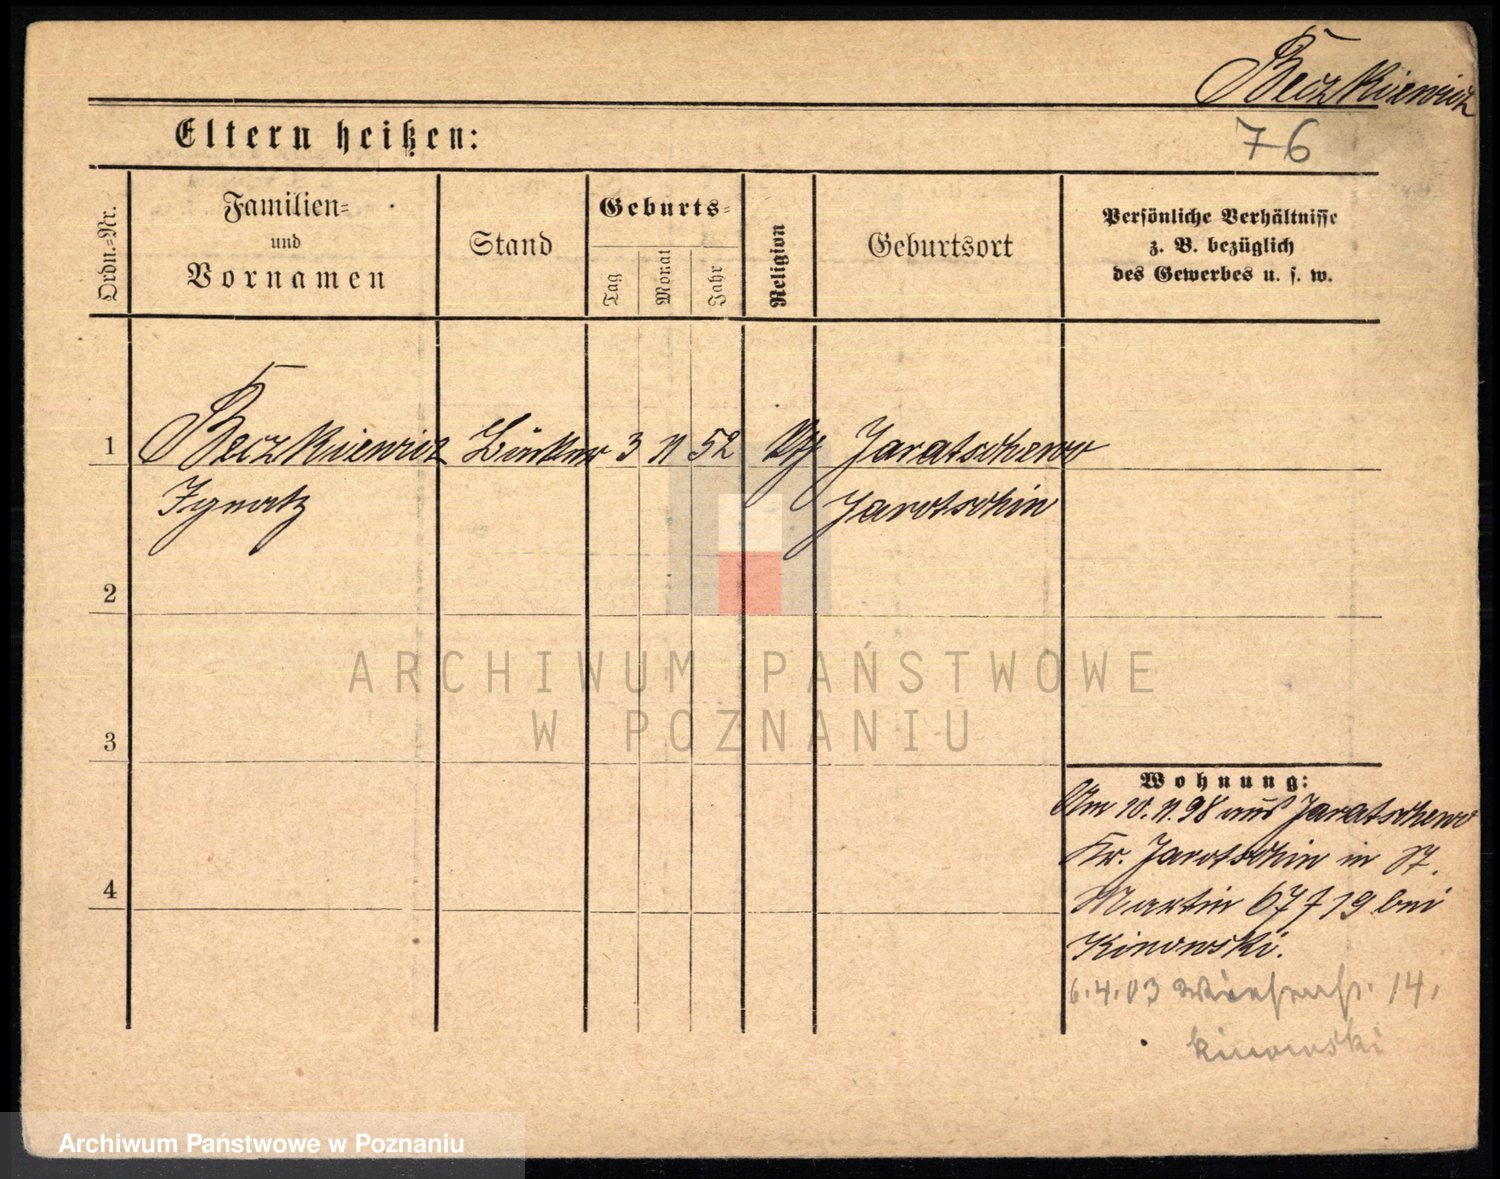 Beczkiewicz
76
Eltern heißen:
Ordn.-Nr.
Familien-
und
Vornamen
Stand
Geburts-
Tag
Monat
Jahr
Religion
Geburtsort
Persönliche Verhältnisse
z. B. bezüglich
des Gewerbes u. s. w.
1 Beczkiewicz 3 11 52 Jaratschewo
Ignatz Jarotschin
2
3
4
ARCHIWUM PAŃSTWOWE
W POZNANIU
Wohnung:
Am 10.11.98 aus Jaratschewo
Kr. Jarotschin in St.
Martin 67 bei
Kinowski.
6.4.03 14.
Kinowski
Archiwum Państwowe w Poznaniu